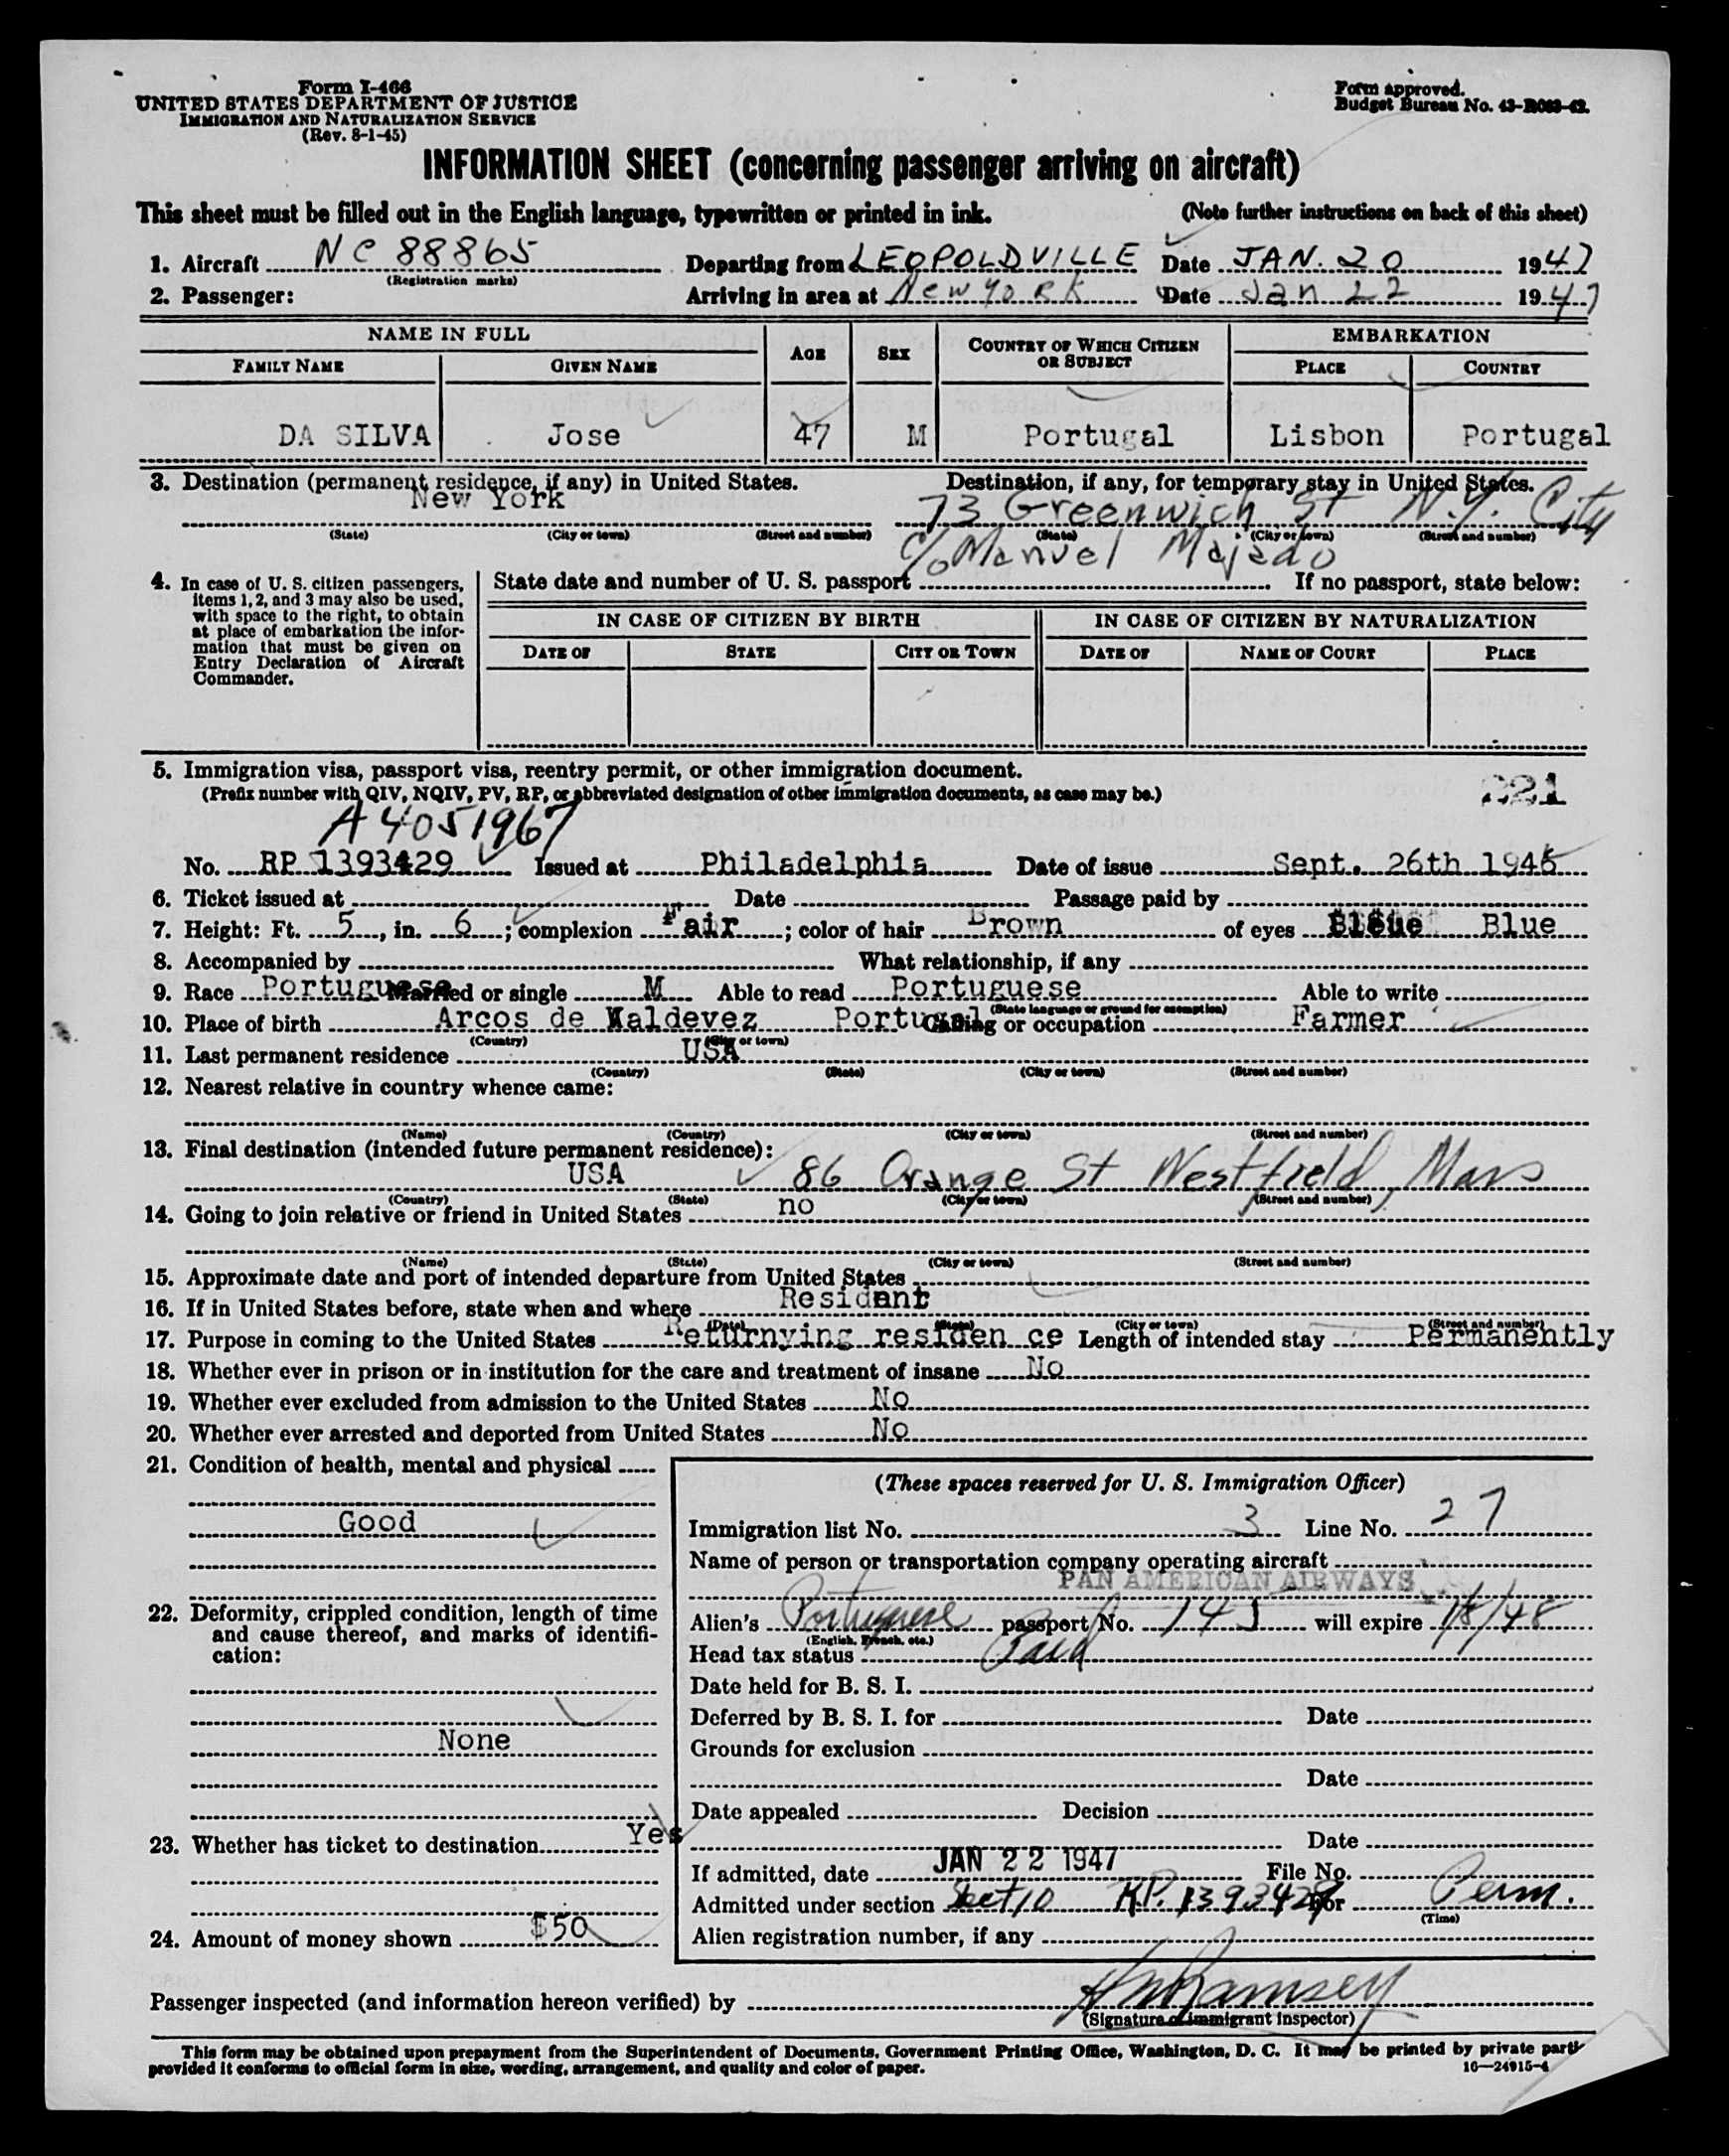 Form I-466
UNITED STATES DEPARTMENT OF JUSTICE
IMMIGRATION AND NATURALIZATION SERVICE
(Rev. 8-1-45)
Form approved.
Budget Bureau No. 43-R083-42.
INFORMATION SHEET (concerning passenger arriving on aircraft)
This sheet must be filled out in the English language, typewritten or printed in ink. (Note further instructions on back of this sheet)
1. Aircraft NC 88865 Departing from LEOPOLDVILLE Date JAN. 20 1947
(Registration marks)
2. Passenger: Arriving in area at New York Date Jan 22 1947
NAME IN FULL AGE SEX COUNTRY OF WHICH CITIZEN OR SUBJECT EMBARKATION
FAMILY NAME GIVEN NAME PLACE COUNTRY
DA SILVA Jose 47 M Portugal Lisbon Portugal
3. Destination (permanent residence, if any) in United States. Destination, if any, for temporary stay in United States.
New York 73 Greenwich St N.Y. City
(State) (City or town) (Street and number) (State) (City or town) (Street and number)
c/o Manuel Majedo
4. In case of U. S. citizen passengers, items 1, 2, and 3 may also be used, with space to the right, to obtain at place of embarkation the information that must be given on Entry Declaration of Aircraft Commander.
State date and number of U. S. passport If no passport, state below:
IN CASE OF CITIZEN BY BIRTH IN CASE OF CITIZEN BY NATURALIZATION
DATE OF STATE CITY OR TOWN DATE OF NAME OF COURT PLACE
5. Immigration visa, passport visa, reentry permit, or other immigration document.
(Prefix number with QIV, NQIV, PV, RP, or abbreviated designation of other immigration documents, as case may be.) 221
A 4051967
No. RP 1393429 Issued at Philadelphia Date of issue Sept. 26th 1946
6. Ticket issued at Date Passage paid by
7. Height: Ft. 5, in. 6; complexion Fair; color of hair Brown of eyes Blue
8. Accompanied by What relationship, if any
9. Race Portuguese Married or single M Able to read Portuguese Able to write
(State language or ground for exemption)
10. Place of birth Arcos de Valdevez Portugal Calling or occupation Farmer
(Country) (City or town)
11. Last permanent residence USA
(Country) (State) (City or town) (Street and number)
12. Nearest relative in country whence came:
(Name) (Country) (City or town) (Street and number)
13. Final destination (intended future permanent residence):
USA 86 Orange St Westfield, Mass
(Country) (State) (City or town) (Street and number)
14. Going to join relative or friend in United States no
(Name) (State) (City or town) (Street and number)
15. Approximate date and port of intended departure from United States
16. If in United States before, state when and where Resident
(Date) (State) (City or town) (Street and number)
17. Purpose in coming to the United States Returnying residen ce Length of intended stay Permanently
18. Whether ever in prison or in institution for the care and treatment of insane No
19. Whether ever excluded from admission to the United States No
20. Whether ever arrested and deported from United States No
21. Condition of health, mental and physical
Good
22. Deformity, crippled condition, length of time and cause thereof, and marks of identification:
None
23. Whether has ticket to destination Yes
24. Amount of money shown $50
(These spaces reserved for U. S. Immigration Officer)
Immigration list No. 3 Line No. 27
Name of person or transportation company operating aircraft
PAN AMERICAN AIRWAYS
Alien's Portuguese passport No. 145 will expire /48
(English, French, etc.)
Head tax status Paid
Date held for B. S. I.
Deferred by B. S. I. for Date
Grounds for exclusion
Date
Date appealed Decision
Date
If admitted, date JAN 22 1947 File No.
Admitted under section Sect 10 RP. 1393429 for Perm.
(Time)
Alien registration number, if any
Passenger inspected (and information hereon verified) by Ramsey
(Signature of immigrant inspector)
This form may be obtained upon prepayment from the Superintendent of Documents, Government Printing Office, Washington, D. C. It may be printed by private parti
provided it conforms to official form in size, wording, arrangement, and quality and color of paper. 16—24915-4